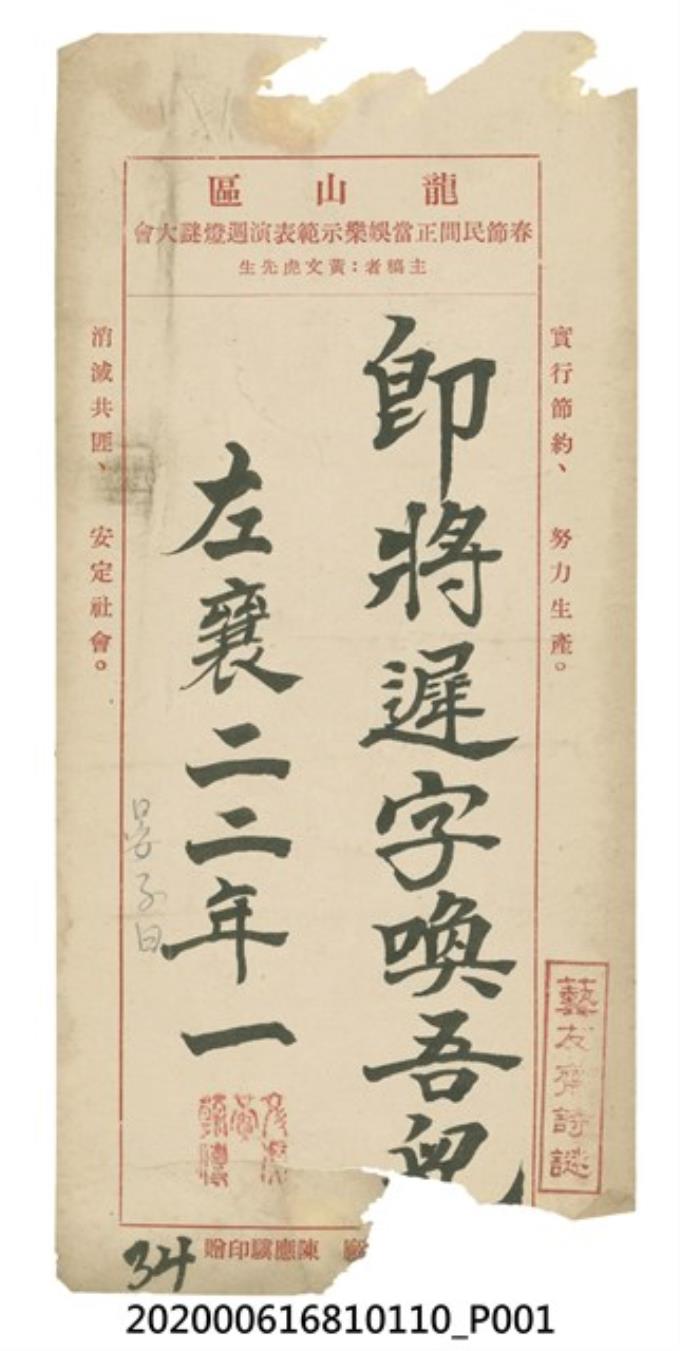 龍山區
春節民間正當娛樂示範表演週燈謎大會
主稿者：黃文虎先生
實行節約、努力生產。
即將遲字喚吾兒
左襄二二年一
晏子曰
消滅共匪、安定社會。
藝友齋詩謎
陳應騏印贈
34
202000616810110_P001